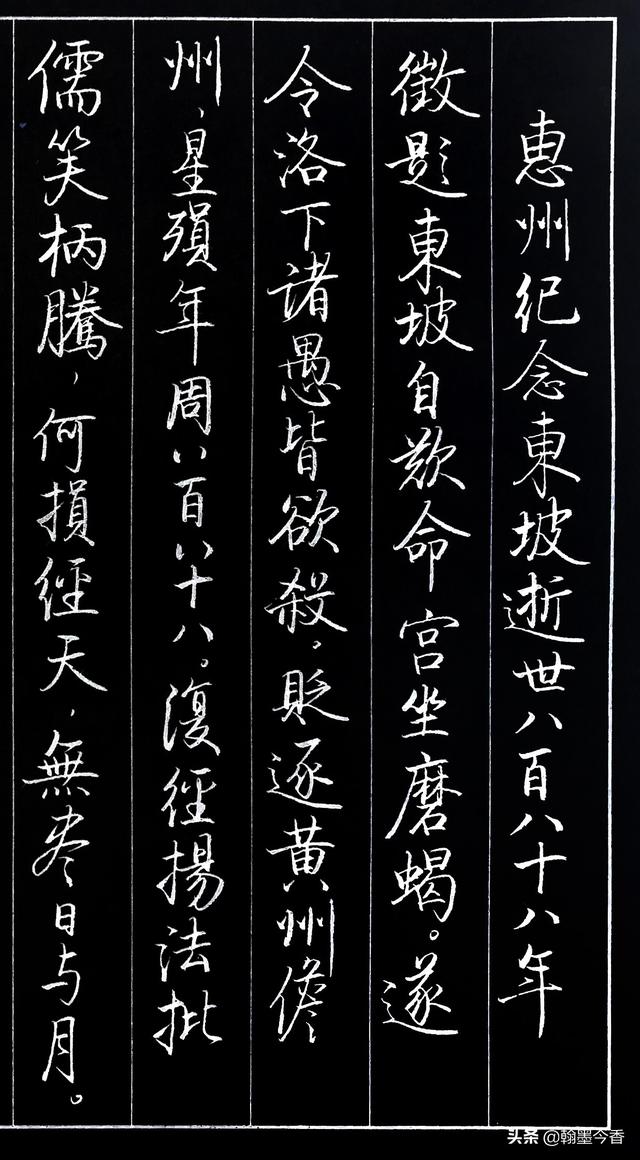 惠州纪念東坡逝世八百八十八年
徵题東坡自歎命宫坐磨蝎。遂
令洛下諸愚皆欲殺，贬逐黄州儋
州，星殒年周八百八十八。復經揚法批
儒笑柄騰，何損經天，無尽日与月。
头条 @翰墨今香